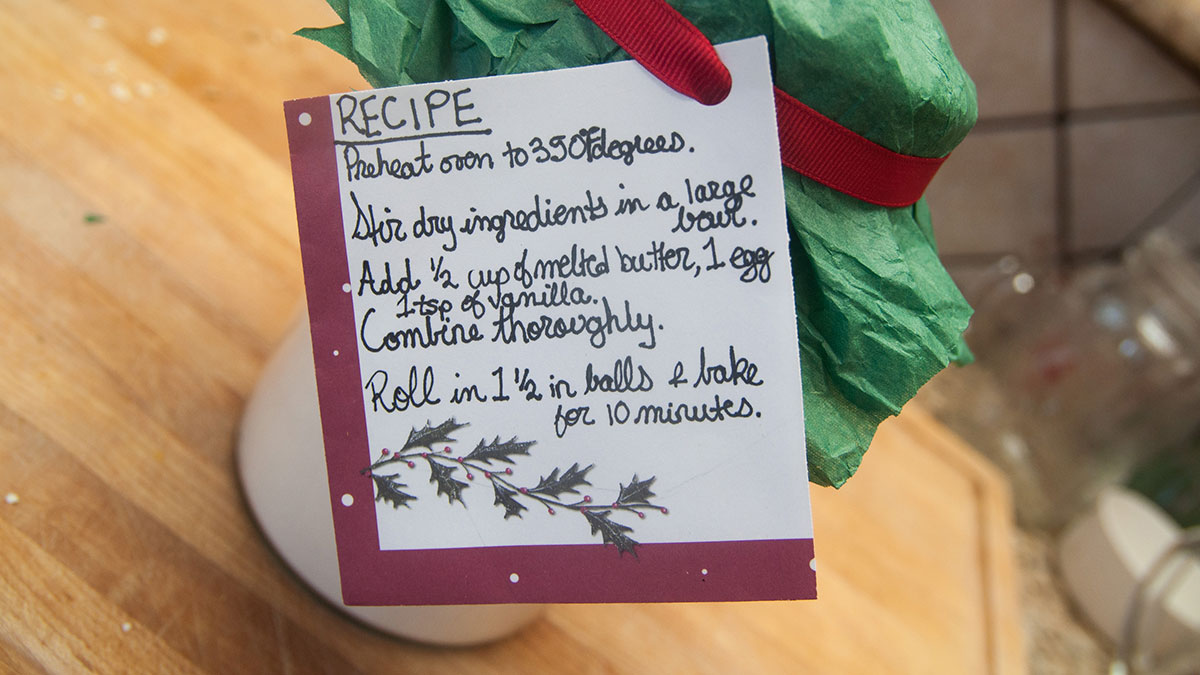 RECIPE
Preheat oven to 350°F degrees.
Stir dry ingredients in a large
bowl.
Add ½ cup of melted butter, 1 egg
1 tsp of vanilla.
Combine thoroughly.
Roll in 1 ½ in balls & bake
for 10 minutes.